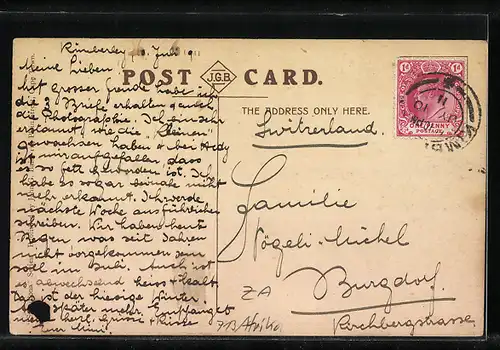 Kimberley 10. Juli 1911
Meine Lieben
Mit grosser Freude habe ich
die 3 Briefe erhalten auch
die Photographie. Ich
erstaunt, wie die "Kleinen"
gewachsen haben + bei
ist mir aufgefallen, dass
es so fett geworden ist. Ich
habe es sogar beinahe nicht
mehr erkannt. Ich werde
nächste Woche ausführlicher
schreiben. Wir haben heute
Regen was seit Jahren
nicht vorgekommen sein
soll im Juli. Auch ist
es abwechselnd heiss + kalt.
Das ist der hiesige Winter
später mehr. Empfanget
herzl. Grüsse + Küsse
POST J.G.B. CARD.
THE ADDRESS ONLY HERE.
Switzerland.
Familie
Vögeli-Michel
Burgdorf
Kirchbergstrasse
ZA
713 Afrika
1d 1d
ONE PENNY
POSTAGE